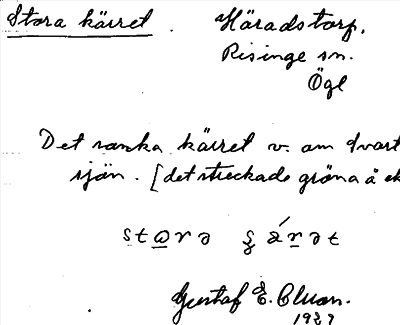 Stora kärret. Häradstorp,
Risinge sn.
Ögl
Det sanka kärret v. om Svart
sjön. [det streckade gröna å ek
Gustaf E. Cluson.